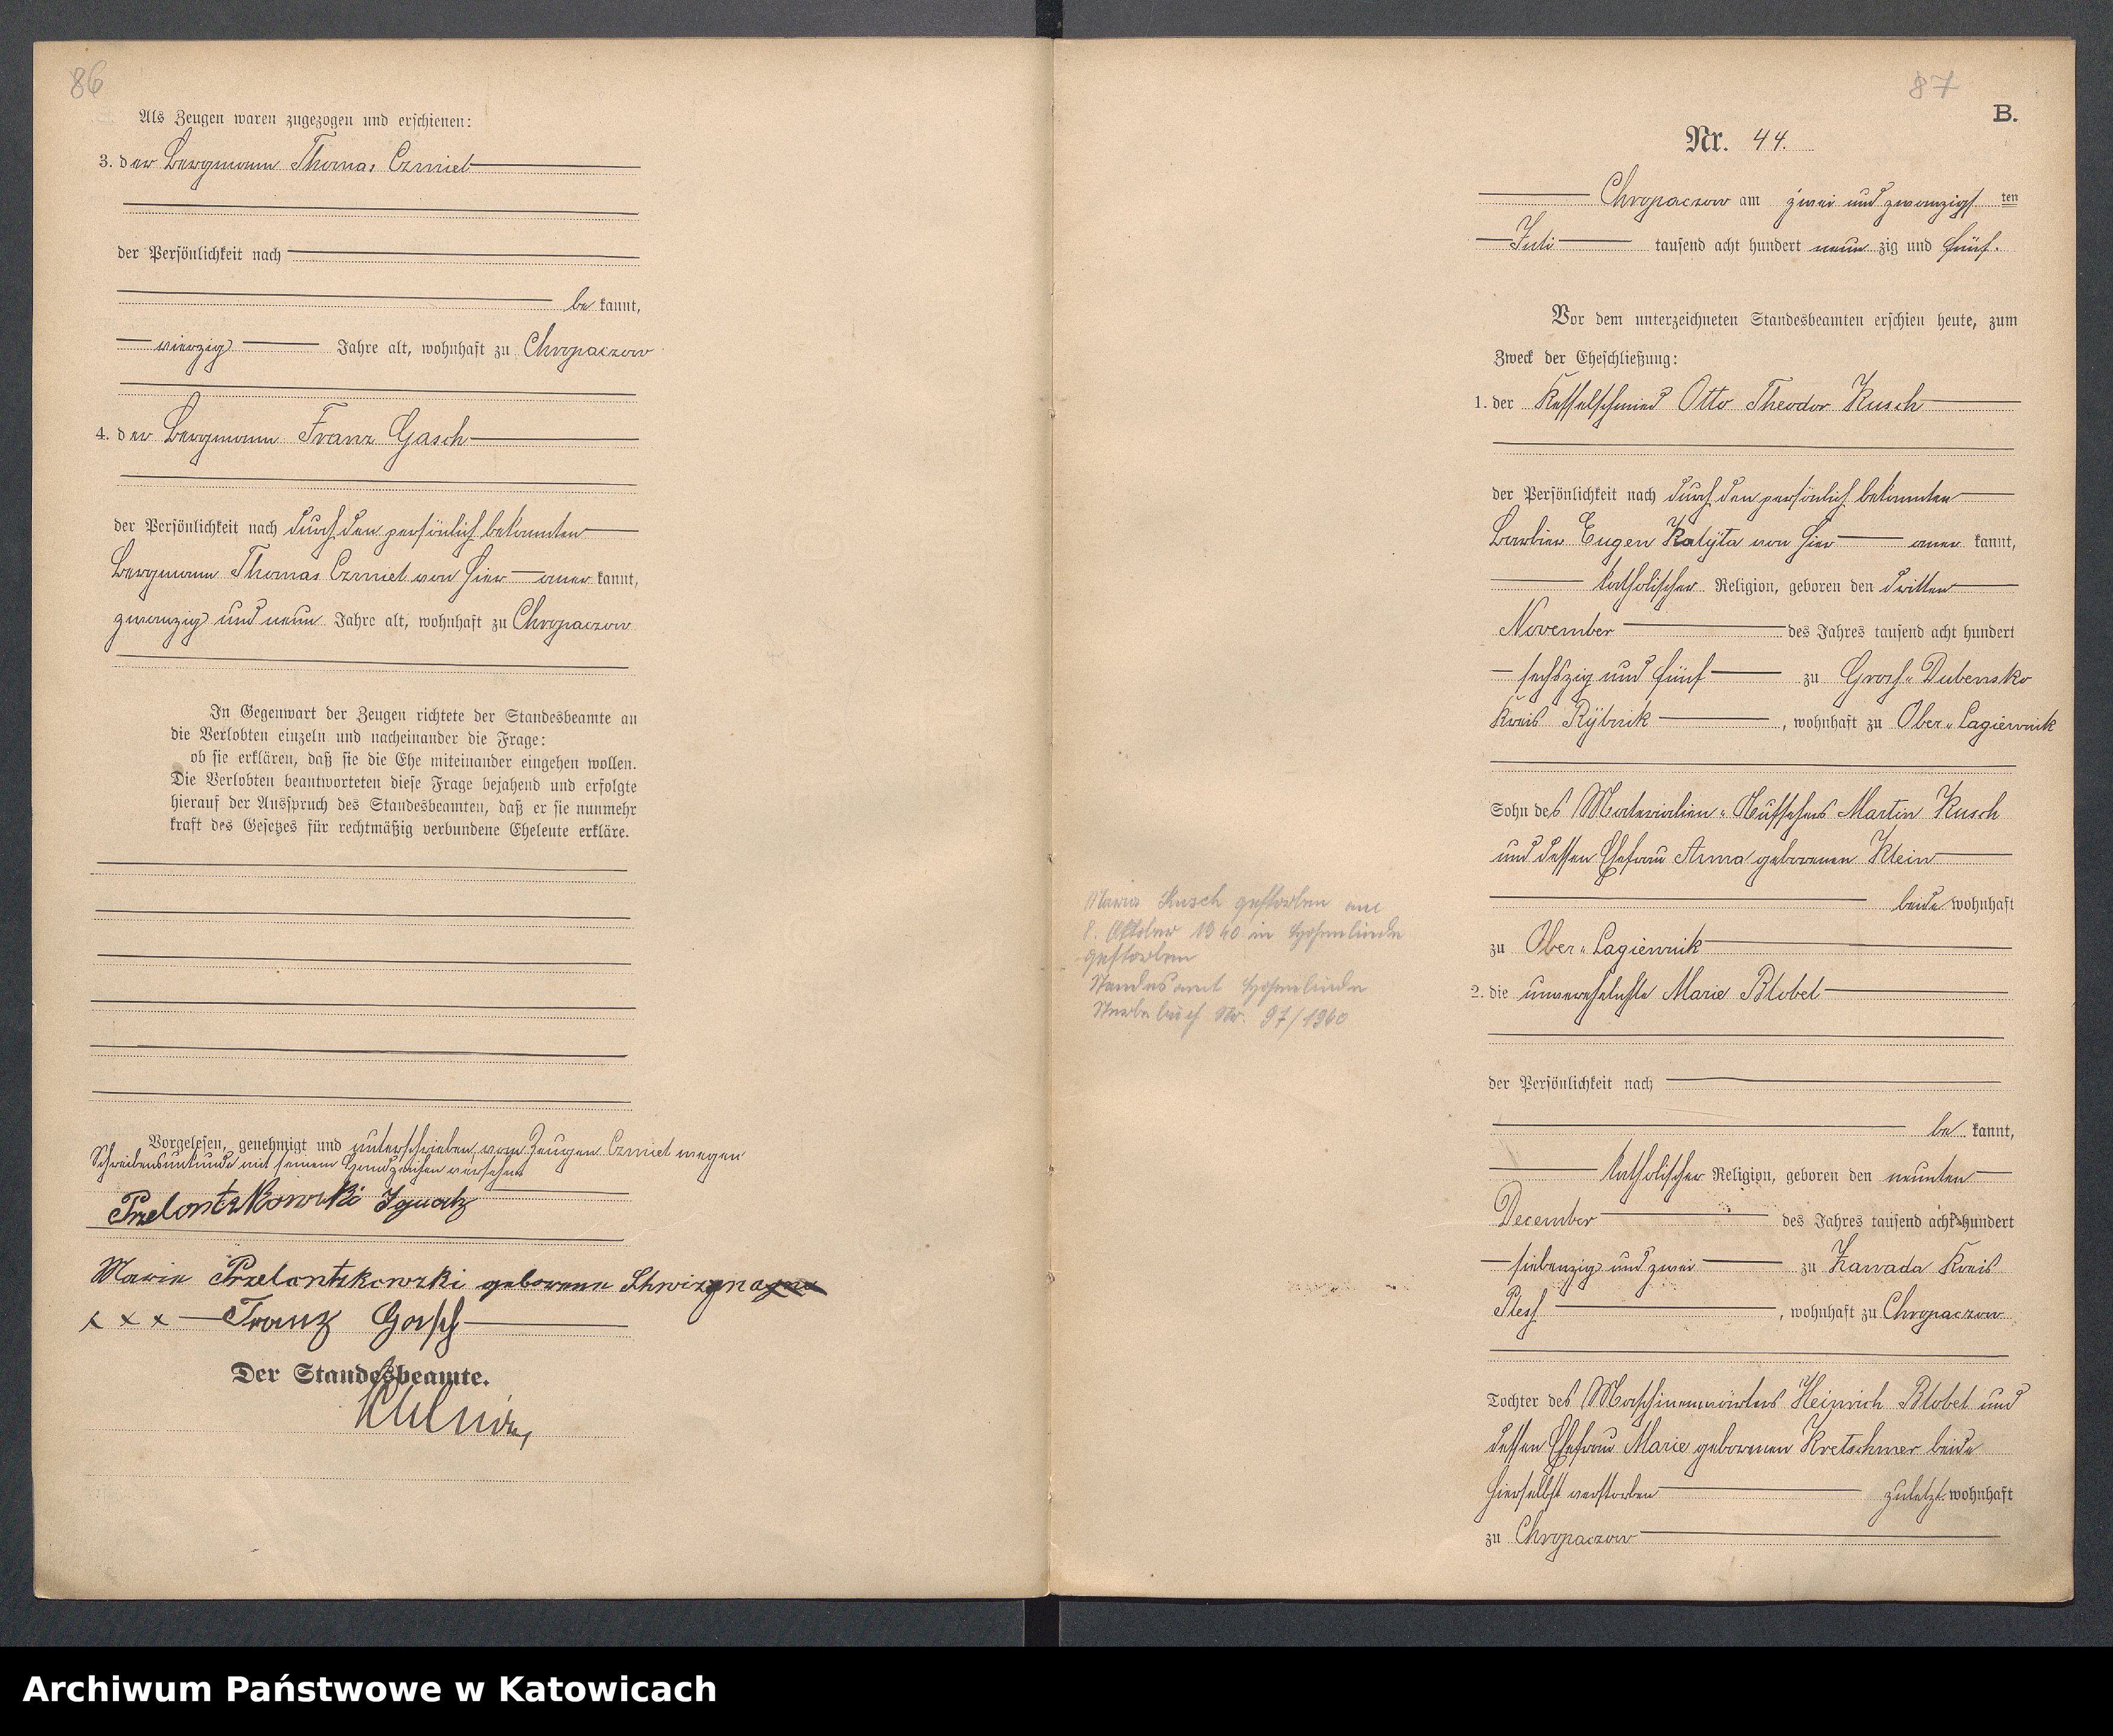 86
Als Zeugen waren zugezogen und erschienen:
3. der Bergmann Thomas Czmiel
der Persönlichkeit nach
be kannt,
vierzig Jahre alt, wohnhaft zu Chropaczow
4. der Bergmann Franz Gasch
der Persönlichkeit nach durch den persönlich bekannten
Bergmann Thomas Czmiel von hier aner kannt,
zwanzig und neun Jahre alt, wohnhaft zu Chropaczow
In Gegenwart der Zeugen richtete der Standesbeamte an
die Verlobten einzeln und nacheinander die Frage:
ob sie erklären, daß sie die Ehe miteinander eingehen wollen.
Die Verlobten beantworteten diese Frage bejahend und erfolgte
hierauf der Ausspruch des Standesbeamten, daß er sie nunmehr
kraft des Gesetzes für rechtmäßig verbundene Eheleute erkläre.
Vorgelesen, genehmigt und unterschrieben, vom Zeugen Czmiel wegen
Schreibensunkunde mit seinem Handzeichen versehen
Przelontzkowski Ignatz
Marie Przelontzkowski geborene
x x x Franz Gasch
Der Standesbeamte.
87
B.
Nr. 44.
Chropaczow am zwei und zwanzigs ten
Juli tausend acht hundert neun zig und fünf.
Vor dem unterzeichneten Standesbeamten erschien heute, zum
Zweck der Eheschließung:
1. der Kesselschmied Otto Theodor Kusch
der Persönlichkeit nach durch den persönlich bekannten
Barbier Eugen Kalyta von hier aner kannt,
katholischer Religion, geboren den dritten
November des Jahres tausend acht hundert
sechszig und fünf zu Gross-Dubensko
Kreis Rybnik, wohnhaft zu Ober-Lagiewnik
Sohn des Materialien-Aufsehers Martin Kusch
und dessen Ehefrau Anna geborenen Klein
beide wohnhaft
zu Ober-Lagiewnik
2. die unverehelichte Marie Blobel
der Persönlichkeit nach
be kannt,
katholischer Religion, geboren den neunten
December des Jahres tausend acht hundert
siebenzig und zwei zu Zawada Kreis
Pless, wohnhaft zu Chropaczow
Tochter des Maschinenwärters Heinrich Blobel und
dessen Ehefrau Marie geborenen Kretschmer beide
hierselbst verstorben zuletzt wohnhaft
zu Chropaczow
Maria Kusch gestorben am
8. Oktober 1940 in Hohenlinde
gestorben
Standesamt Hohenlinde
Sterbebuch Nr. 97/1940
Archiwum Państwowe w Katowicach